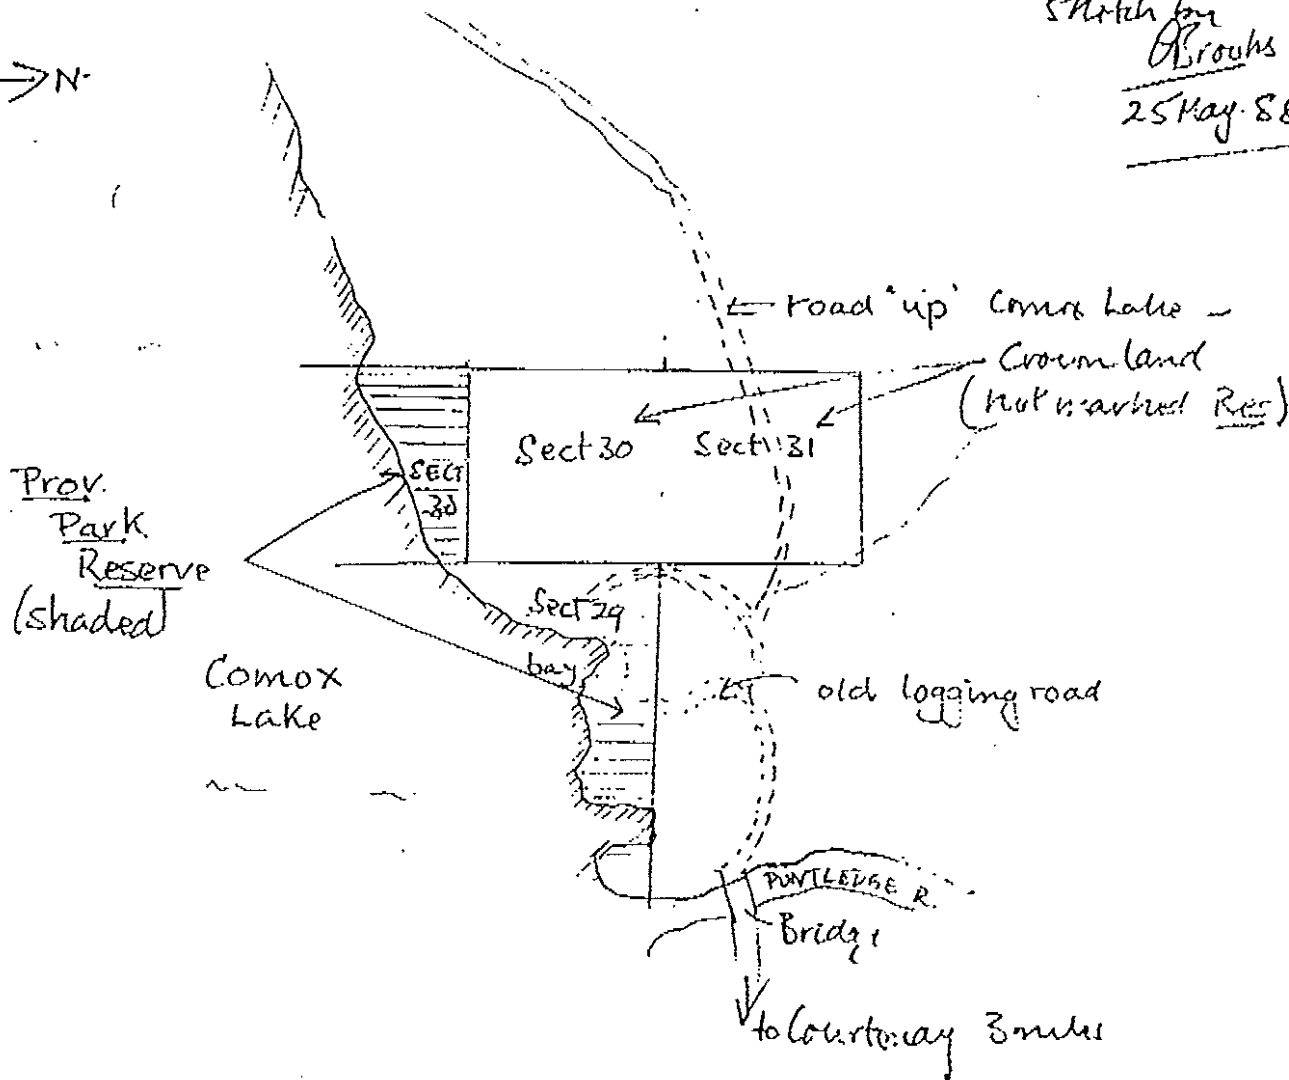 Sketch by
Brooks
25 May. 88
N.
road "up" Comox Lake –
Crown land
(not marked Res)
Sect 30
Sect 31
SECT
30
Prov.
Park
Reserve
(shaded)
Sect 29
bay
Comox
Lake
old logging road
PUNTLEDGE R.
Bridge
to Courtenay 3 miles